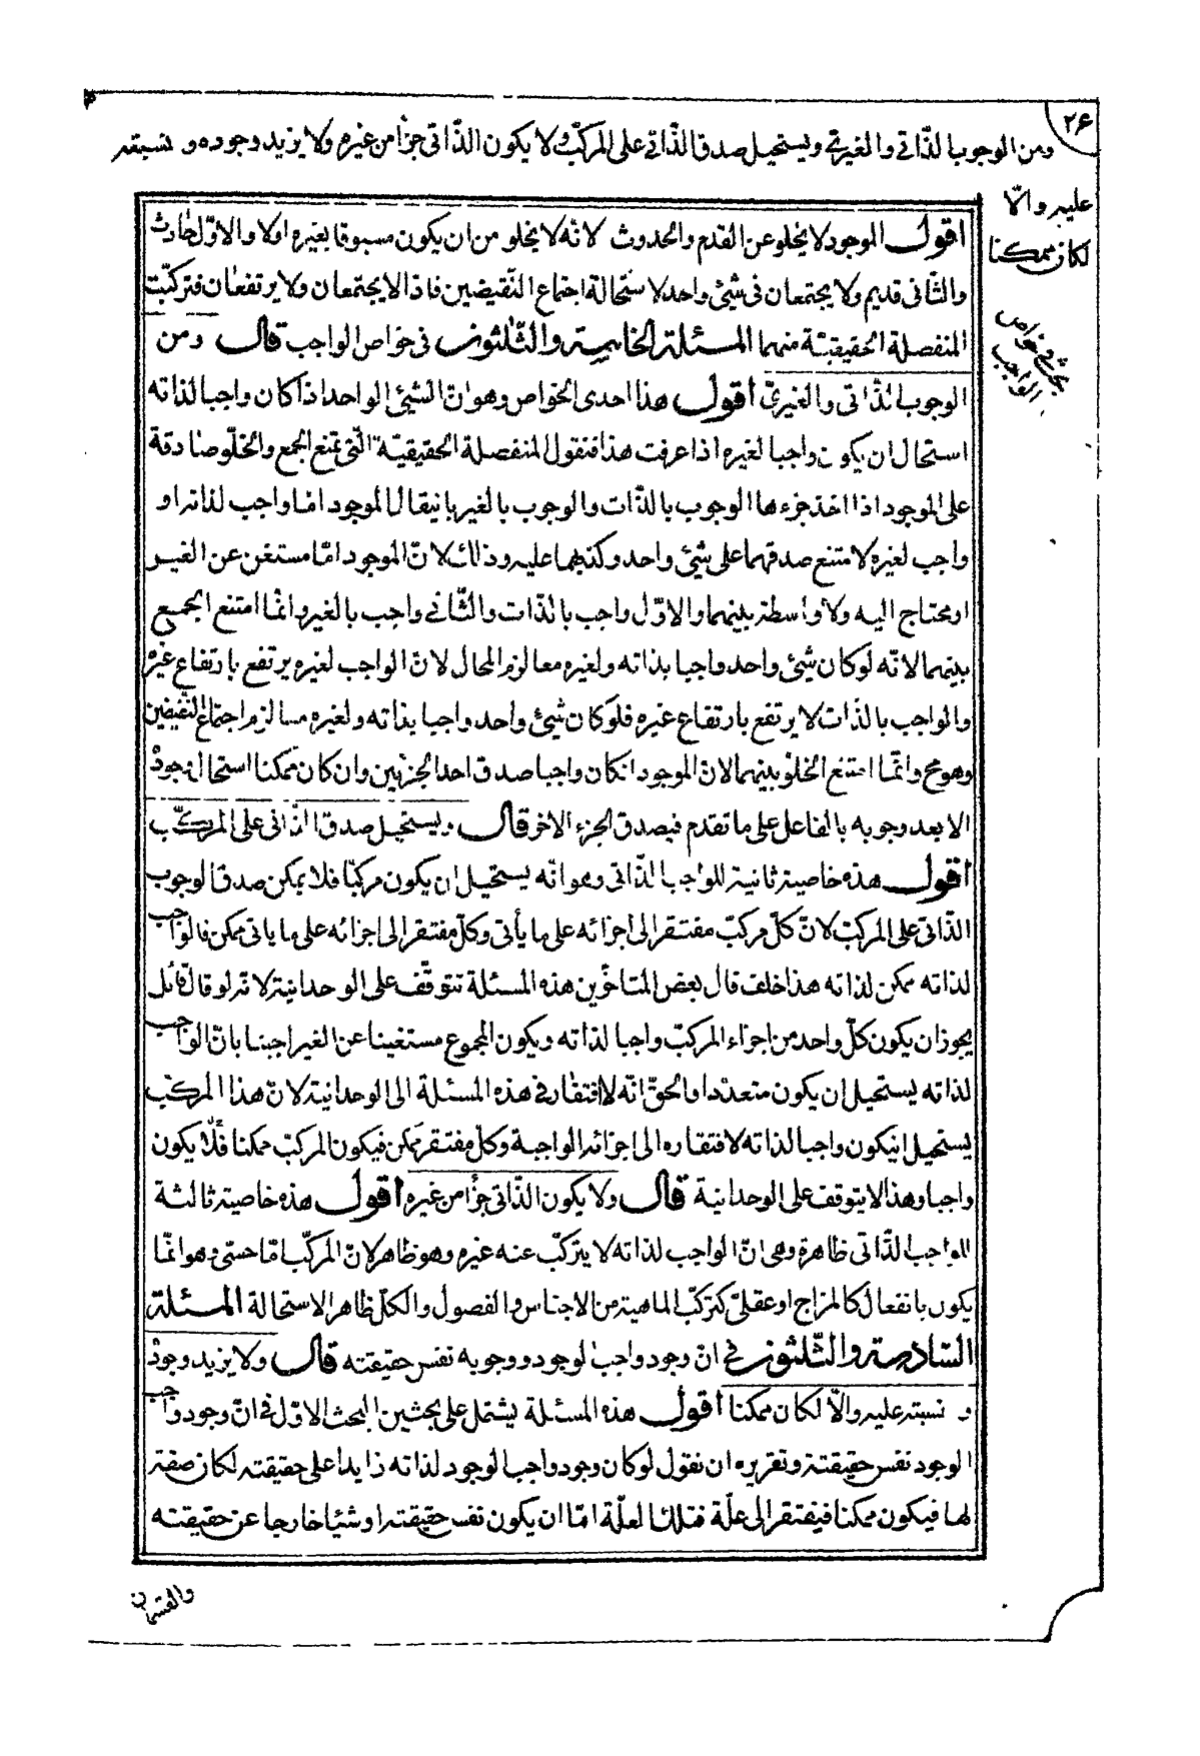 ٢۶
ومن الوجوب الذّاتي والغيري ويستحيل صدق الذّاتي على المركّب ولا يكون الذّاتى جزأ من غيره ولا يزيد وجوده و نسبته
عليه والّا
لكان ممكنا
بحث فى خواص
الواجب
اقول الموجود لا يخلو عن القدم والحدوث لانّه لا يخلو من ان يكون مسبوقا بغيره اولا والاوّل حادث
والثّانى قديم ولا يجتمعان فى شئ واحد لاستحالة اجتماع النّقيضين فاذا لا يجتمعان ولا يرتفعان فتركّبت
المنفصلة الحقيقيّة منهما المسئلة الخامسة والثّلثون فى خواص الواجب قال ومن
الوجوب الذّاتى والغيرىّ اقول هذا احدى الخواص وهو انّ الشئ الواحد اذا كان واجبا لذاته
استحال ان يكون واجبا لغيره اذا عرفت هذا فنقول المنفصلة الحقيقيّة الّتى تمنع الجمع والخلّو صادقة
على الموجود اذا اخذ جزءها الوجوب بالذّات والوجوب بالغير بان يقال الموجود امّا واجب لذاته او
واجب لغيره لامتنع صدقهما على شئ واحد وكذبهما عليه وذلك لانّ الموجود امّا مستغن عن الغير
او محتاج اليه ولا واسطة بينهما والاوّل واجب بالذّات والثّانى واجب بالغير وانّما امتنع الجمع
بينهما لانّه لو كان شئ واحد واجبا بذاته ولغيره معا لزم المحال لانّ الواجب لغيره يرتفع بارتفاع غيره
والواجب بالذّات لا يرتفع بارتفاع غيره فلو كان شئ واحد واجبا بذاته ولغيره معا لزم اجتماع النّقيضين
وهو مح وانّما امتنع الخلّو بينهما لانّ الموجود ان كان واجبا صدق احد الجزئين وان كان ممكنا استحال وجوده
الا بعد وجوبه بالفاعل على ما تقدم فيصدق الجزء الاخر قال ويستحيل صدق الذّاتى على المركّب
اقول هذه خاصية ثانية للواجب الذّاتى وهو انّه يستحيل ان يكون مركّبا فلا يمكن صدق الوجوب
الذّاتى على المركّب لانّ كلّ مركّب مفتقر الى اجزائه على ما يأتى وكلّ مفتقر الى اجزائه على ما ياتى ممكن فالواجب
لذاته ممكن لذاته هذا خلف قال بعض المتاخّرين هذه المسئلة تتوقّف على الوحدانية لانّه لو قال قائل
يجوز ان يكون كلّ واحد من اجزاء المركّب واجبا لذاته ويكون المجموع مستغينا عن الغير اجبنا بانّ الواجب
لذاته يستحيل ان يكون متعدّدا والحقّ انّه لا افتقار فى هذه المسئلة الى الوحدانية لانّ هذا المركّب
يستحيل ان يكون واجبا لذاته لافتقاره الى اجزائه الواجبة وكلّ مفتقر ممكن فيكون المركّب ممكنا فلا يكون
واجبا وهذا لا يتوقف على الوحدانية قال ولا يكون الذّاتى جزأ من غيره اقول هذه خاصية ثالثة
للواجب الذّاتى ظاهرة وهى انّ الواجب لذاته لا يتركّب عنه غيره وهو ظاهر لانّ المركّب امّا حسّى وهو انّما
يكون بانفعال كالمزاج او عقلىّ كتركّب الماهية من الاجناس والفصول والكلّ ظاهر الاستحالة المسئلة
السّادسة والثّلثون فى انّ وجود واجب الوجود ووجوبه نفس حقيقته قال ولا يزيد وجوده
و نسبته عليه والّا لكان ممكنا اقول هذه المسئلة يشتمل على بحثين البحث الاوّل فى انّ وجود واجب
الوجود نفس حقيقته وتقريره ان نقول لو كان وجود واجب الوجود لذاته زايدا على حقيقته لكان صفة
لها فيكون ممكنا فيفتقر الى علّة فتلك العلّة امّا ان يكون نفس حقيقته او شيئا خارجا عن حقيقته
والقسمان